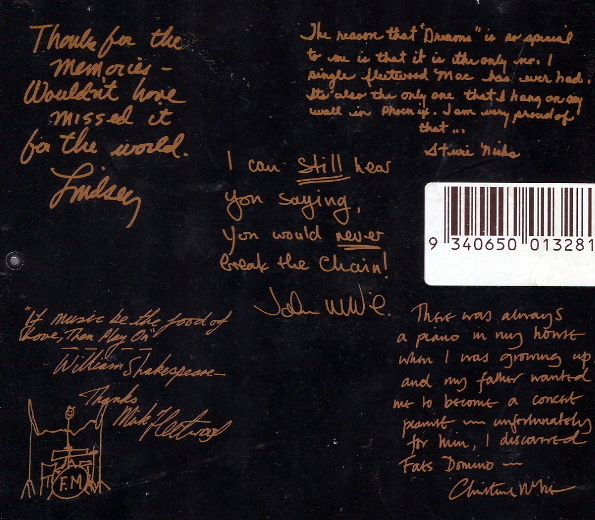 Thanks for the
memories -
Wouldn't have
missed it
for the world.
Lindsey
The reason that "Dreams" is so special
to me is that it is the only no. 1
single fleetwood Mac has ever had.
It's also the only one that I hang on my
wall in Phoenix. I am very proud of
that...
Stevie Nicks
I can still hear
you saying,
you would never
break the Chain!
John McVie.
9 340650 013281
"If music be the food of
Love, Then Play On"
William Shakespeare
Thanks
Mick Fleetwood
F.M
There was always
a piano in my house
when I was growing up
and my father wanted
me to become a concert
pianist — unfortunately
for him, I discovered
Fats Domino —
Christine McVie